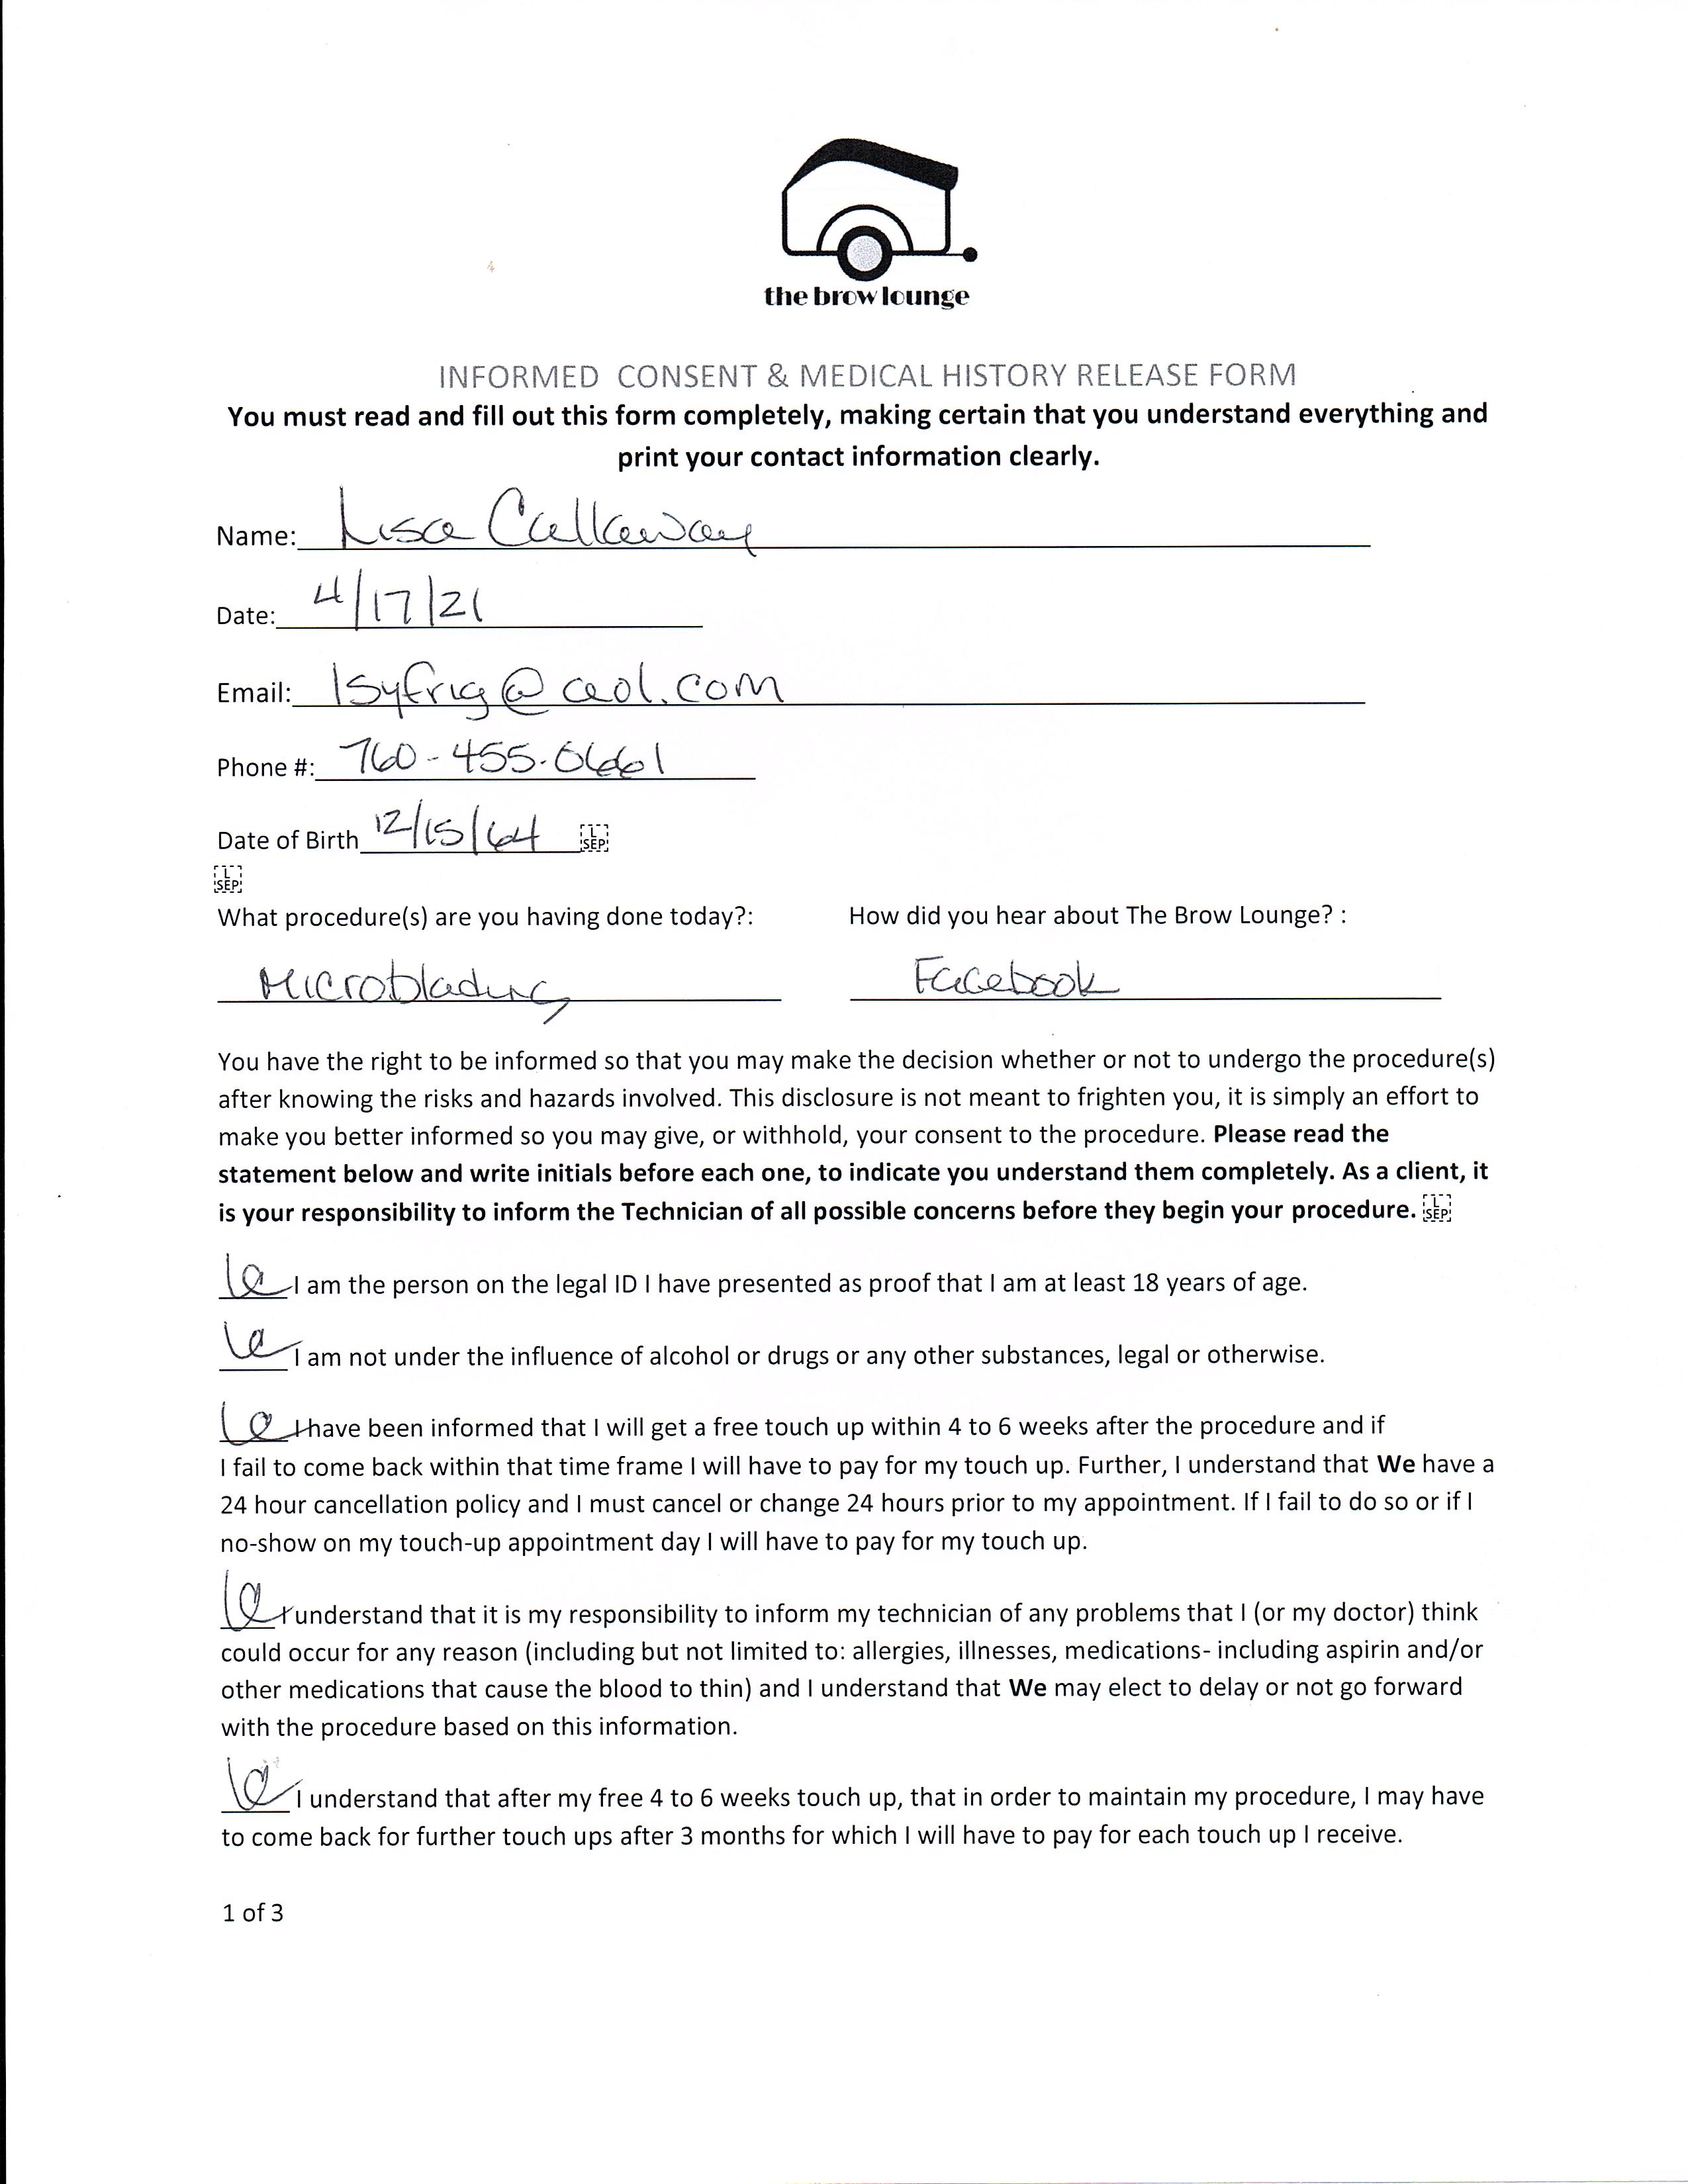 the brow lounge
INFORMED CONSENT & MEDICAL HISTORY RELEASE FORM
You must read and fill out this form completely, making certain that you understand everything and
print your contact information clearly.
Name: Lisa Callaway
Date: 4/17/21
Email: lsyfrig@aol.com
Phone #: 760-455-0661
Date of Birth 12/15/64 L SEP
L SEP
What procedure(s) are you having done today?: How did you hear about The Brow Lounge? :
Microblading Facebook
You have the right to be informed so that you may make the decision whether or not to undergo the procedure(s)
after knowing the risks and hazards involved. This disclosure is not meant to frighten you, it is simply an effort to
make you better informed so you may give, or withhold, your consent to the procedure. Please read the
statement below and write initials before each one, to indicate you understand them completely. As a client, it
is your responsibility to inform the Technician of all possible concerns before they begin your procedure. L SEP
I am the person on the legal ID I have presented as proof that I am at least 18 years of age.
I am not under the influence of alcohol or drugs or any other substances, legal or otherwise.
I have been informed that I will get a free touch up within 4 to 6 weeks after the procedure and if
I fail to come back within that time frame I will have to pay for my touch up. Further, I understand that We have a
24 hour cancellation policy and I must cancel or change 24 hours prior to my appointment. If I fail to do so or if I
no-show on my touch-up appointment day I will have to pay for my touch up.
I understand that it is my responsibility to inform my technician of any problems that I (or my doctor) think
could occur for any reason (including but not limited to: allergies, illnesses, medications- including aspirin and/or
other medications that cause the blood to thin) and I understand that We may elect to delay or not go forward
with the procedure based on this information.
I understand that after my free 4 to 6 weeks touch up, that in order to maintain my procedure, I may have
to come back for further touch ups after 3 months for which I will have to pay for each touch up I receive.
1 of 3